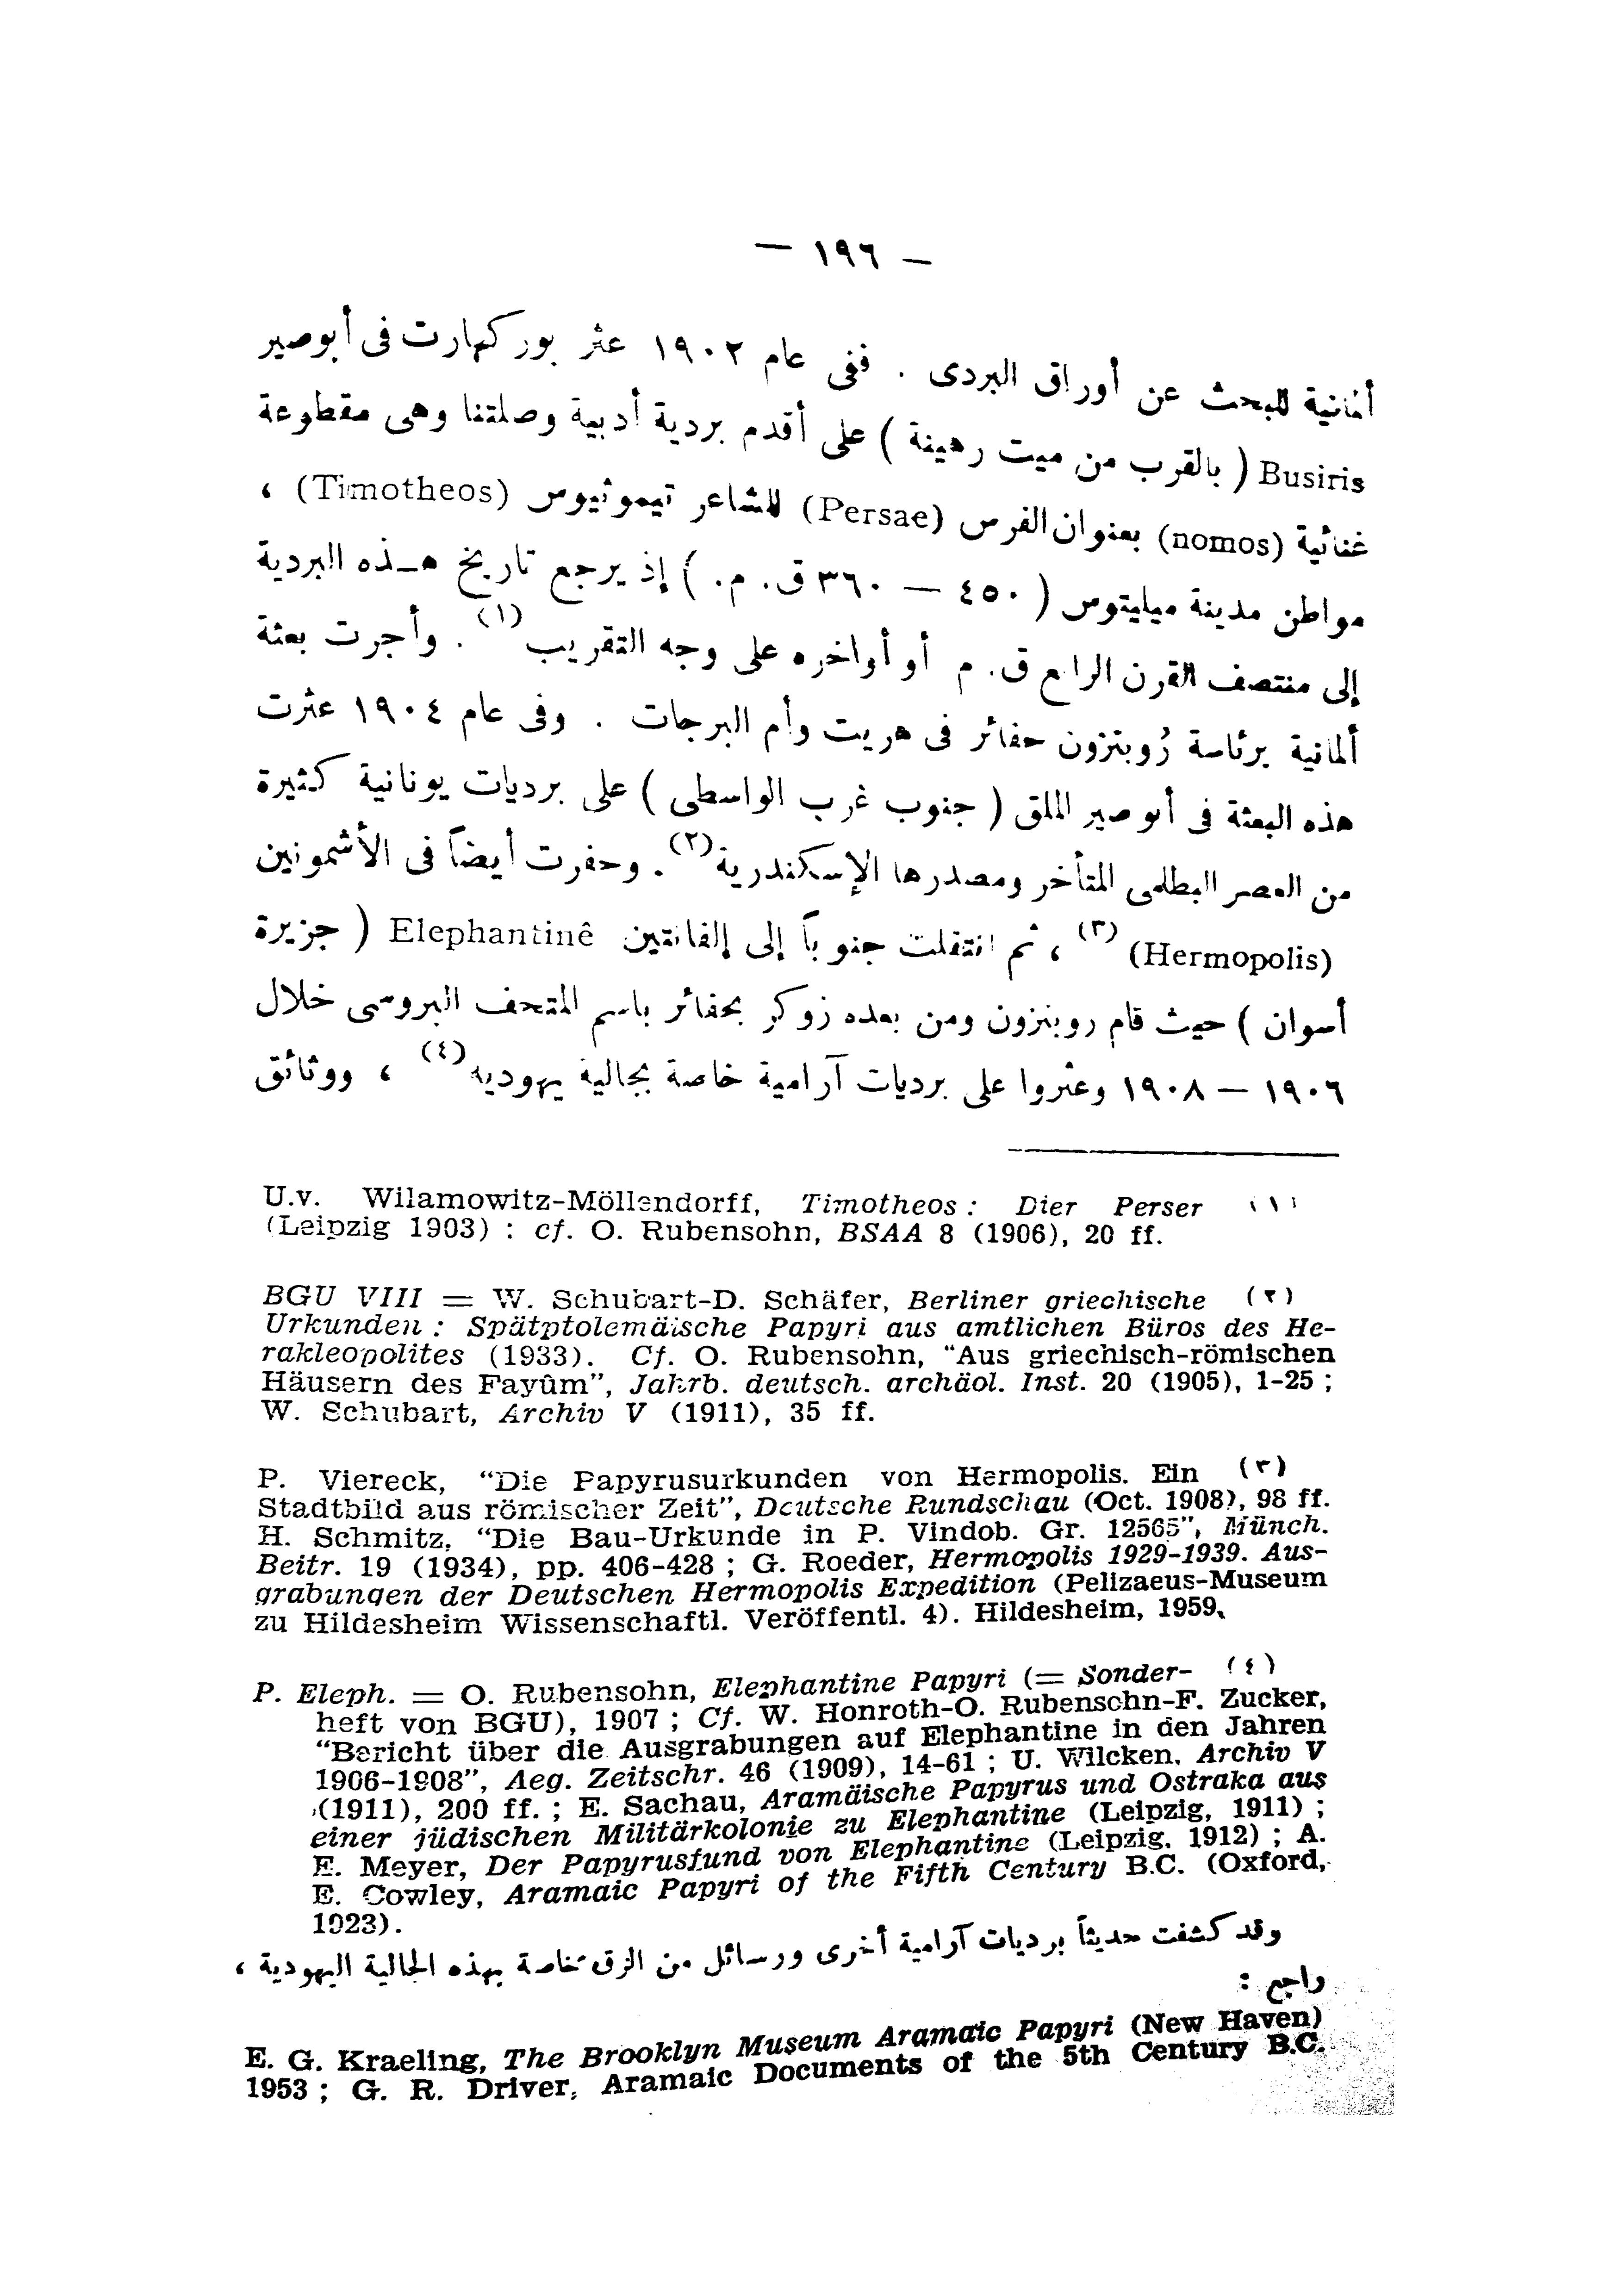 — ١٩٦ —
ألمانية للبحث عن أوراق البردى . ففى عام ١٩٠٢ عثر بوركهارت فى أبوصير
Busiris ( بالقرب من ميت رهينة ) على أقدم بردية أدبية وصلتنا وهى مقطوعة
غنائية (nomos) بعنوان الفرس (Persae) للشاعر تيموثيوس (Timotheos) ،
مواطن مدينة ميليتوس ( ٤٥٠ — ٣٦٠ ق. م. ) إذ يرجع تاريخ هــذه البردية
إلى منتصف القرن الرابع ق. م أو أواخره على وجه التقريب (١) . وأجرت بعثة
ألمانية برئاسة رُوبنزون حفائر فى هريت وأم البرجات . وفى عام ١٩٠٤ عثرت
هذه البعثة فى أبوصير الملق ( جنوب غرب الواسطى ) على برديات يونانية كثيرة
من العصر البطلمى المتأخر ومصدرها الإسكندرية (٢) . وحفرت أيضاً فى الأشمونين
(Hermopolis) (٣) ، ثم انتقلت جنوباً إلى إلفانتين Elephantinê ( جزيرة
أسوان ) حيث قام روبنزون ومن بعده زوكر بحفائر باسم المتحف البروسى خلال
١٩٠٦ — ١٩٠٨ وعثروا على برديات آرامية خاصة بجالية يهودية (٤) ، ووثائق
(١) U.v. Wilamowitz-Möllendorff, Timotheos : Dier Perser
(Leipzig 1903) : cf. O. Rubensohn, BSAA 8 (1906), 20 ff.
(٢) BGU VIII = W. Schubart-D. Schäfer, Berliner griechische
Urkunden : Spätptolemäische Papyri aus amtlichen Büros des He-
rakleopolites (1933). Cf. O. Rubensohn, “Aus griechisch-römischen
Häusern des Fayûm”, Jahrb. deutsch. archäol. Inst. 20 (1905), 1-25 ;
W. Schubart, Archiv V (1911), 35 ff.
(٣) P. Viereck, “Die Papyrusurkunden von Hermopolis. Ein
Stadtbild aus römischer Zeit”, Deutsche Rundschau (Oct. 1908), 98 ff.
H. Schmitz, “Die Bau-Urkunde in P. Vindob. Gr. 12565”, Münch.
Beitr. 19 (1934), pp. 406-428 ; G. Roeder, Hermopolis 1929-1939. Aus-
grabungen der Deutschen Hermopolis Expedition (Pelizaeus-Museum
zu Hildesheim Wissenschaftl. Veröffentl. 4). Hildesheim, 1959.
(٤) P. Eleph. = O. Rubensohn, Elephantine Papyri (= Sonder-
heft von BGU), 1907 ; Cf. W. Honroth-O. Rubensohn-F. Zucker,
“Bericht über die Ausgrabungen auf Elephantine in den Jahren
1906-1908”, Aeg. Zeitschr. 46 (1909), 14-61 ; U. Wilcken, Archiv V
(1911), 200 ff. ; E. Sachau, Aramäische Papyrus und Ostraka aus
einer jüdischen Militärkolonie zu Elephantine (Leipzig, 1911) ;
E. Meyer, Der Papyrusfund von Elephantine (Leipzig, 1912) ; A.
E. Cowley, Aramaic Papyri of the Fifth Century B.C. (Oxford,
1923).
وقد كشفت حديثاً برديات آرامية أخرى ورسائل من الرق خاصة بهذه الجالية اليهودية ،
راجع :
E. G. Kraeling, The Brooklyn Museum Aramaic Papyri (New Haven)
1953 ; G. R. Driver, Aramaic Documents of the 5th Century B.C.